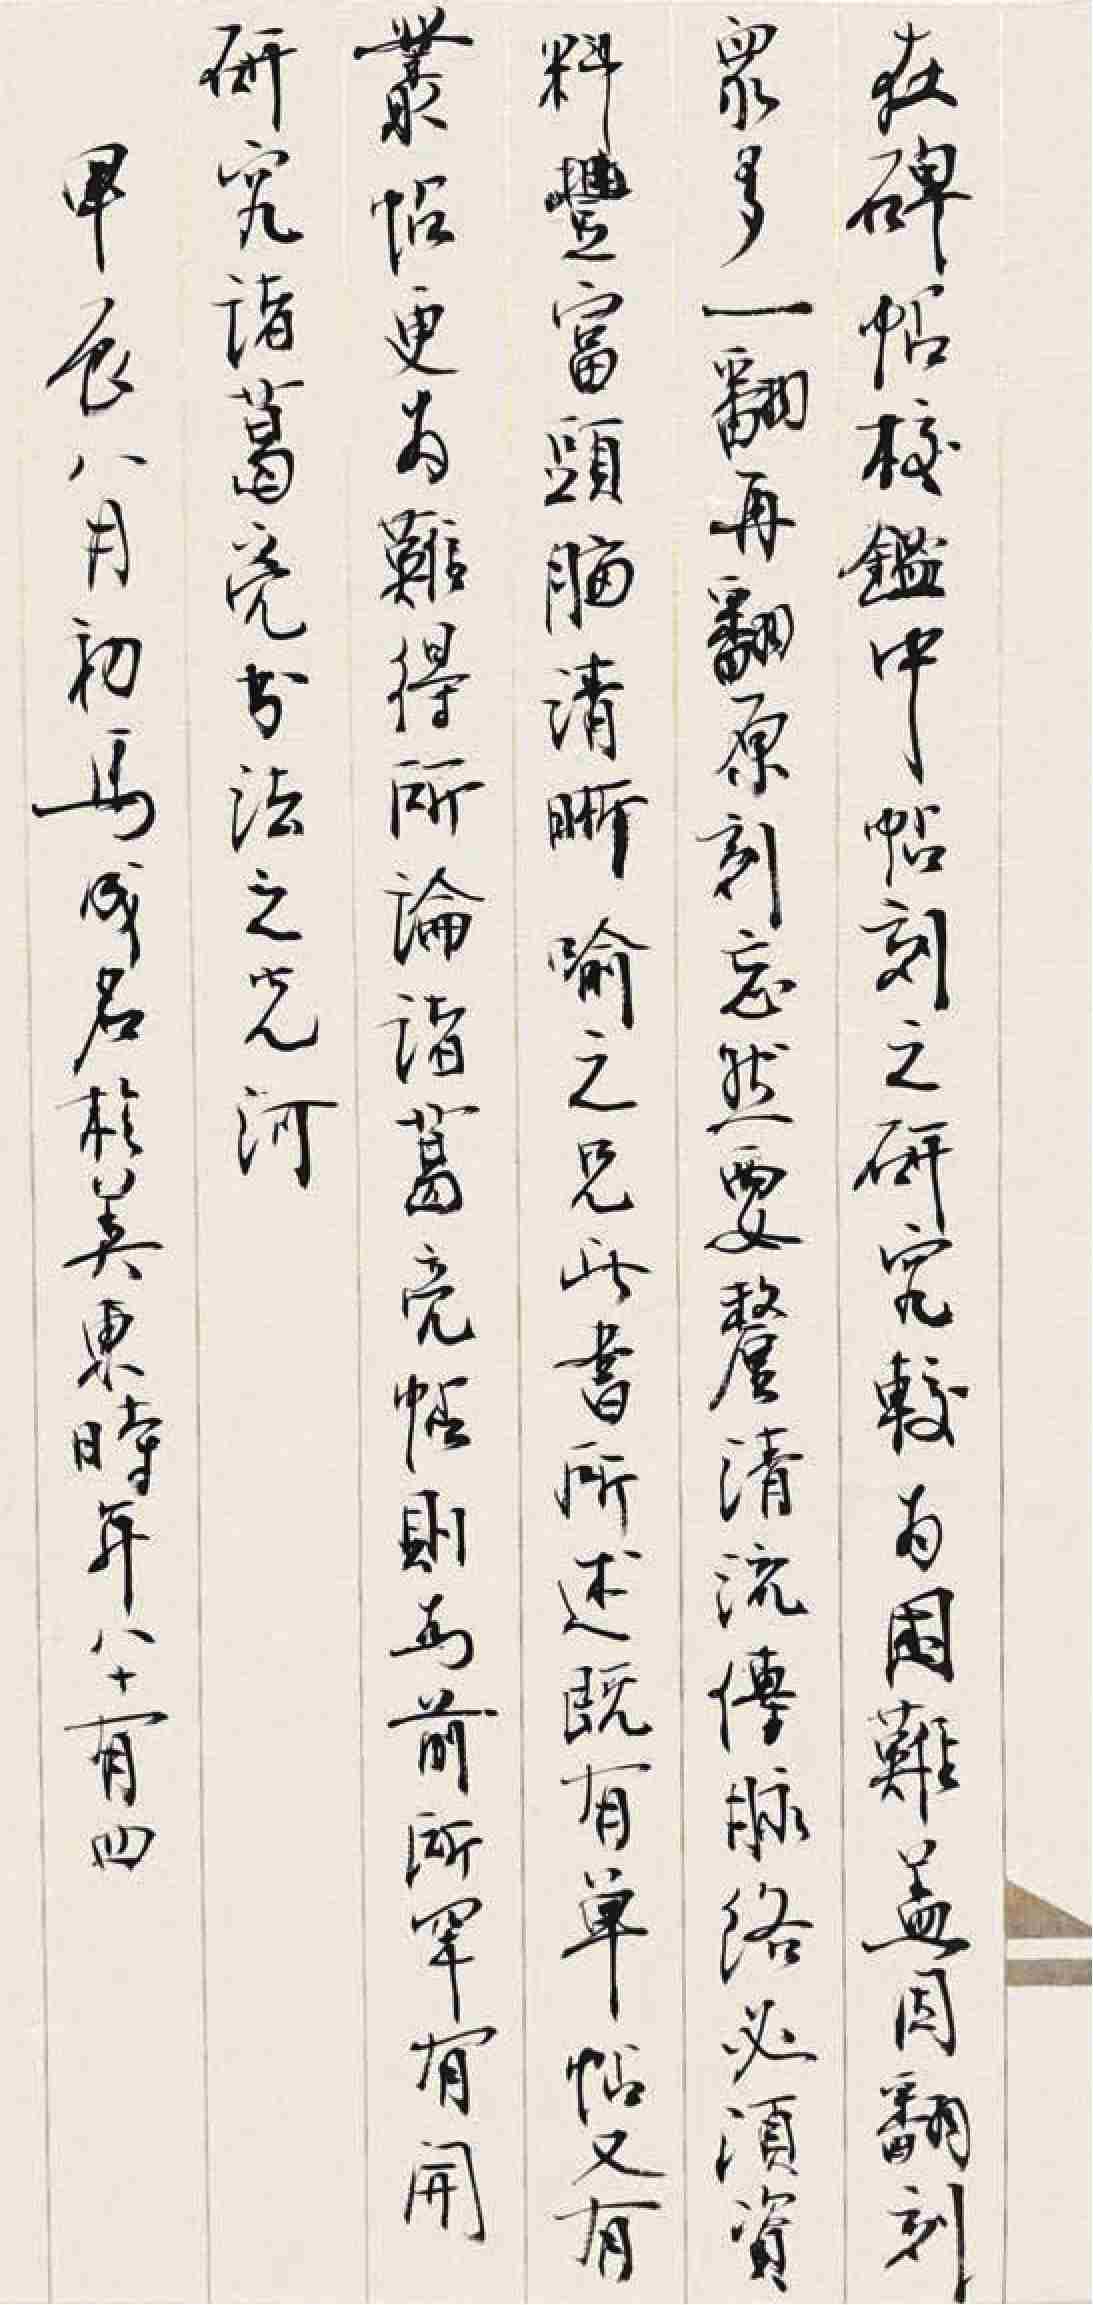 在碑帖校鑑中帖刻之研究較為困難蓋因翻刻
眾多一翻再翻原刻忘然要釐清流傳脉絡必須資
料豐富頭腦清晰喻之兄此書所述既有單帖又有
叢帖更為難得所論諸葛亮帖則為前所罕有開
研究諸葛亮书法之先河
甲辰八月初馬成名於美東時年八十有四